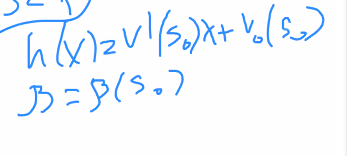 h(x)=v'(s₀)x+v₀(s₀)
β=β(s₀)